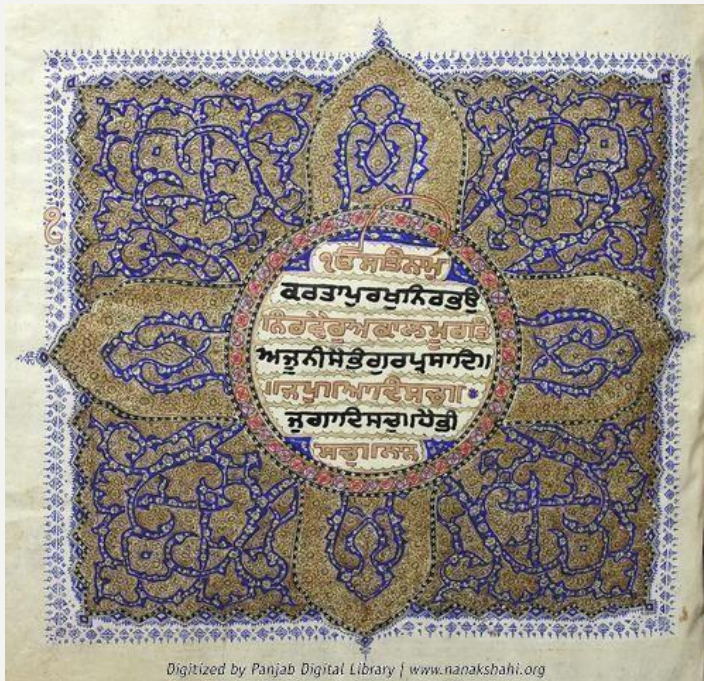 ੴ ਸਤਿਨਾਮੁ
ਕਰਤਾਪੁਰਖੁਨਿਰਭਉ
ਨਿਰਵੈਰੁਅਕਾਲਮੂਰਤਿ
ਅਜੂਨੀਸੈਭੰਗੁਰਪ੍ਰਸਾਦਿ॥
॥ਜਪੁ॥ਆਦਿਸਚੁ॥
ਜੁਗਾਦਿਸਚੁ॥ਹੈਭੀ
ਸਚੁ॥ਨਾਨ
Digitized by Panjab Digital Library | www.nanakshahi.org